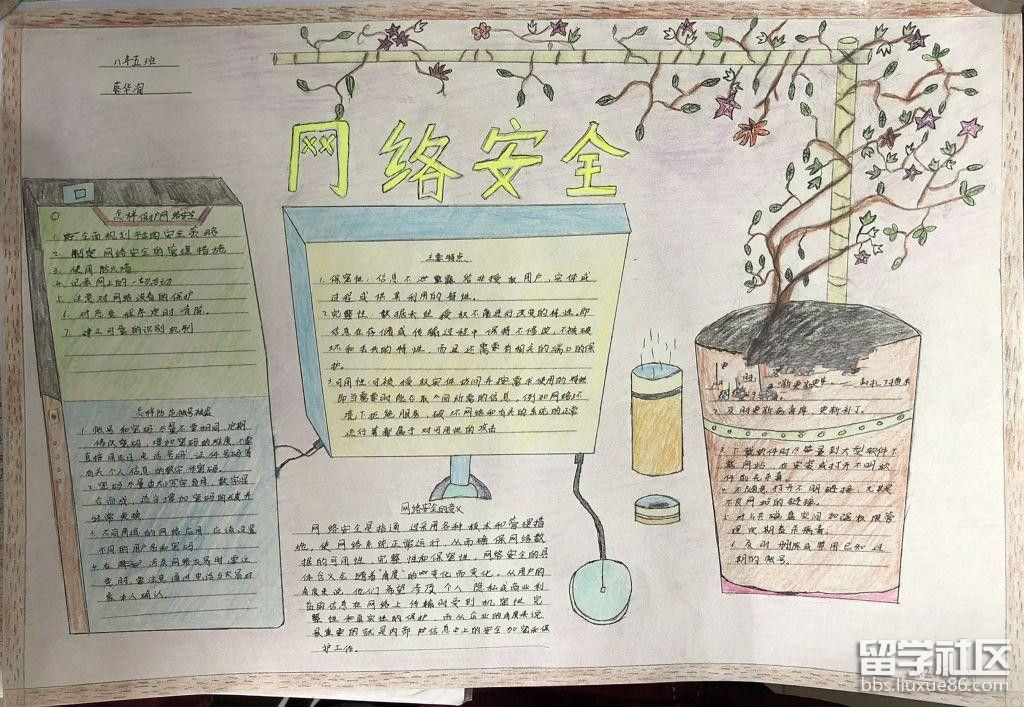 八年五班
网络安全
怎样保护网络安全
1. 全面规划平台的安全策略
2. 制定网络安全的管理措施
3. 使用防火墙
4. 记录网上的一切活动
5. 注意对网络设备的保护
6. 对恶意程序定时清除。
7. 建立可靠的识别机制
怎样防范账号被盗
1. 账号和密码尽量不要相同,定期
修改密码,增加密码的难度,不要
直接用生日、电话号码、证件号码等
有关个人信息的数字作密码。
2. 密码尽量由大小写字母、数字混
合而成,适当增加密码的长度并
经常更换
3. 不同用途的网络应用,应该设置
不同的用户名和密码。
4. 在涉及网络交易时,要注
意时,要注意通过电话与交易对
象本人确认。
主要特点
1. 保密性:信息不泄露给非授权用户、实体或
过程或供其利用的特性。
2. 完整性:数据未经授权不能进行改变的特性。即
信息在存储或传输过程中保持不修改,不被破
坏和丢失的特性,而且还需要有相关的端口的保
护。
3. 可用性:可被授权实体访问并按需求使用的特性
即当需要时能否存取所需的信息,例如网络环
境下拒绝服务、破坏网络和有关的系统的正常
运行等都属于对可用性的攻击
网络安全的意义
网络安全是指通过采用各种技术和管理措
施,使网络系统正常运行,从而确保网络数
据的可用性,完整性和保密性,网络安全的具
体含义会随着"角度"的变化而变化。从用户的
角度来说,他们希望涉及个人隐私或商业利
益的信息在网络上传输时受到机密性完
整性和真实性的保护,而从企业的角度来说
最重要的就是内部信息上的安全加密和保
护工作。
2. 及时更新病毒库,更新补丁。
3. 下载软件时尽量到大型软件下
载网站,在安装或打开不明软
件前先杀毒。
4. 不随意打开不明链接,尤其是
不良网站的链接。
5. 对公共磁盘空间加强权限管
理定期查杀病毒。
6. 及时删除或禁用已知过
期的账号。
留学社区
bbs.liuxue86.com